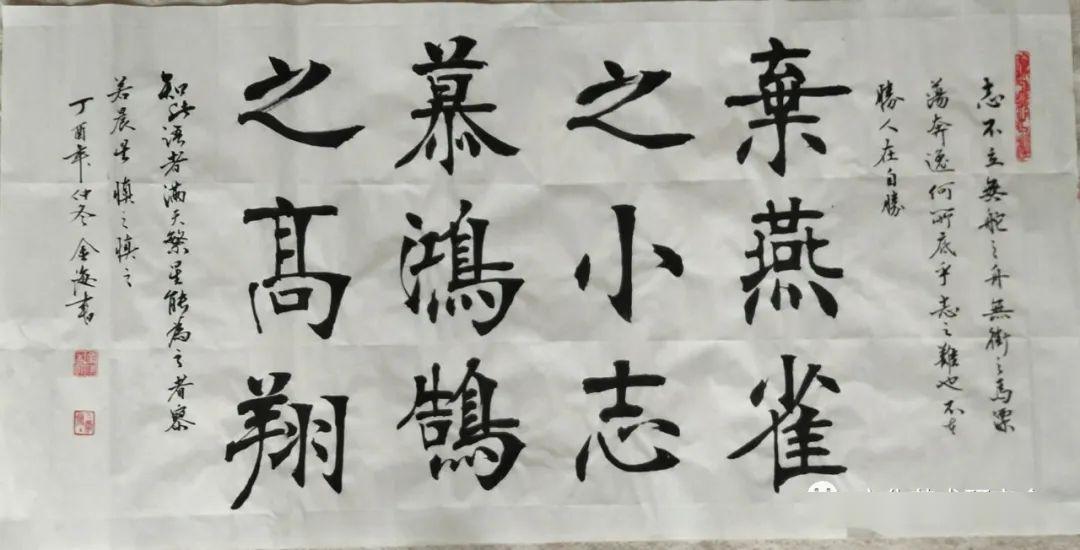 志不立無舵之舟無銜之馬漂
蕩奔逸何所底乎志之難也不在
勝人在自勝
棄燕雀
之小志
慕鴻鵠
之髙翔
知此語者滿天繁星能為之者寥
若晨星慎之慎之
丁酉年仲冬金海書